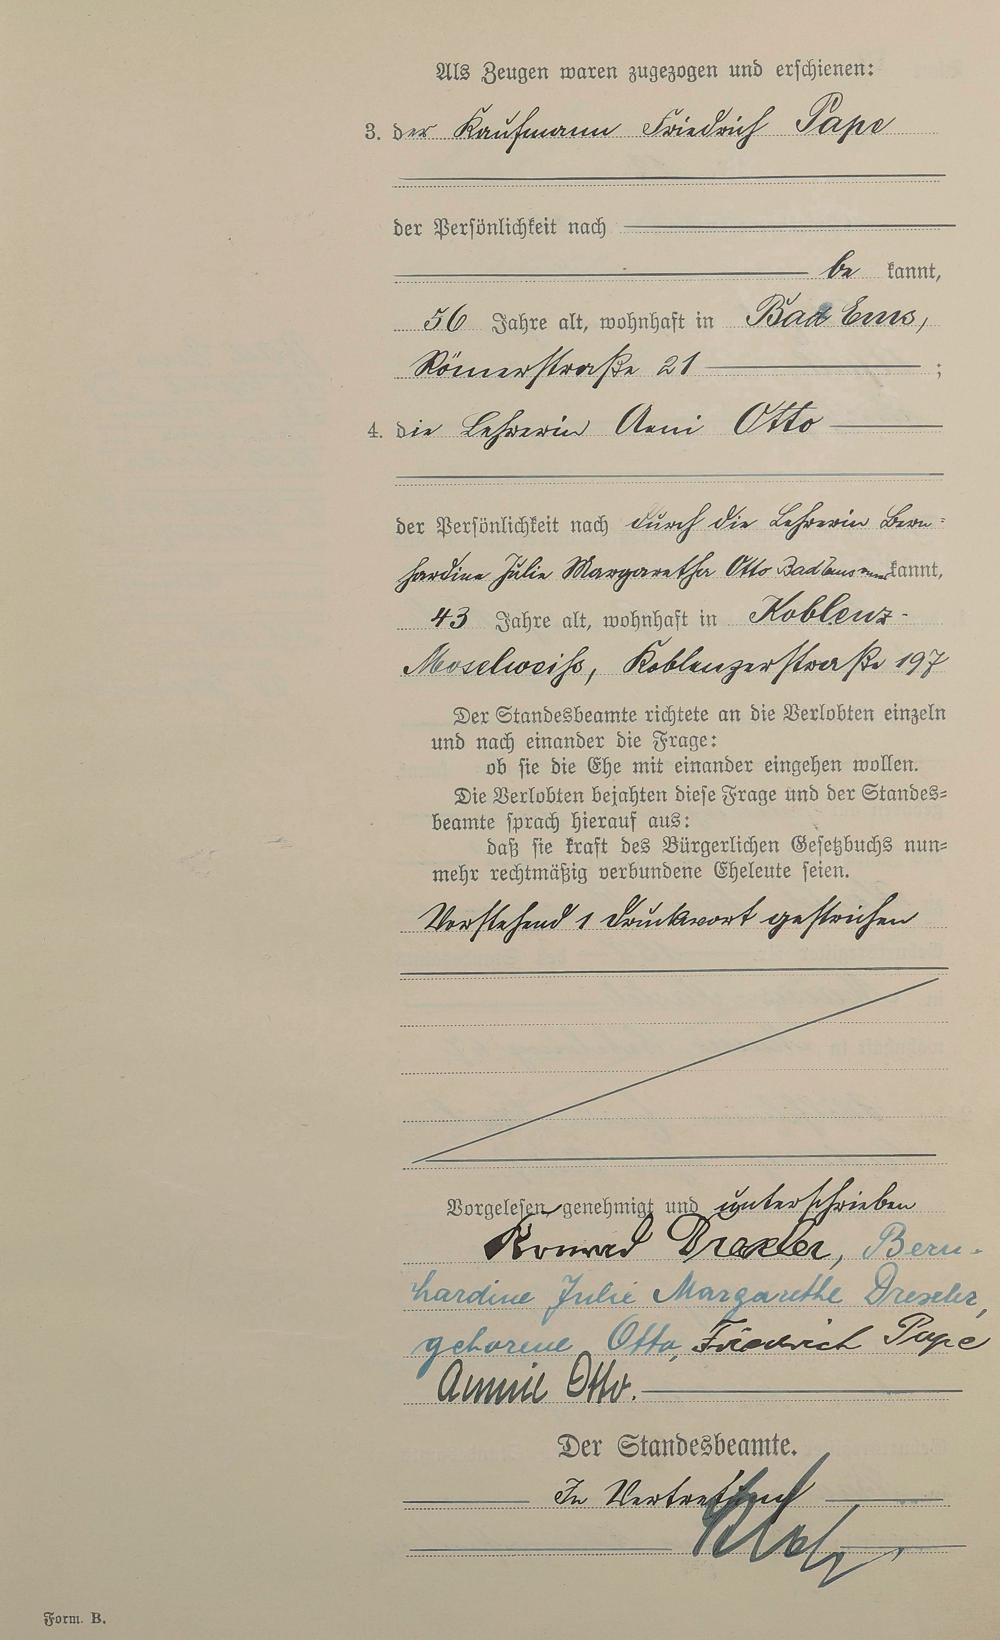 Als Zeugen waren zugezogen und erschienen:
3. der Kaufmann Friedrich Pape
der Persönlichkeit nach
be kannt,
56 Jahre alt, wohnhaft in Bad Ems,
Römerstraße 21 ;
4. die Lehrerin Anni Otto
der Persönlichkeit nach durch die Lehrerin Bern-
hardine Julie Margaretha Otto Bad Ems kannt,
43 Jahre alt, wohnhaft in Koblenz-
Moselweiß, Koblenzerstraße 197
Der Standesbeamte richtete an die Verlobten einzeln
und nach einander die Frage:
ob sie die Ehe mit einander eingehen wollen.
Die Verlobten bejahten diese Frage und der Standes-
beamte sprach hierauf aus:
daß sie kraft des Bürgerlichen Gesetzbuchs nun-
mehr rechtmäßig verbundene Eheleute seien.
Vorstehend 1 Druckwort gestrichen
Vorgelesen, genehmigt und unterschrieben
Konrad Drexler, Bern-
hardine Julie Margarethe Drexler,
geborene Otto, Friedrich Pape
Annie Otto.
Der Standesbeamte.
In Vertretung
Form. B.